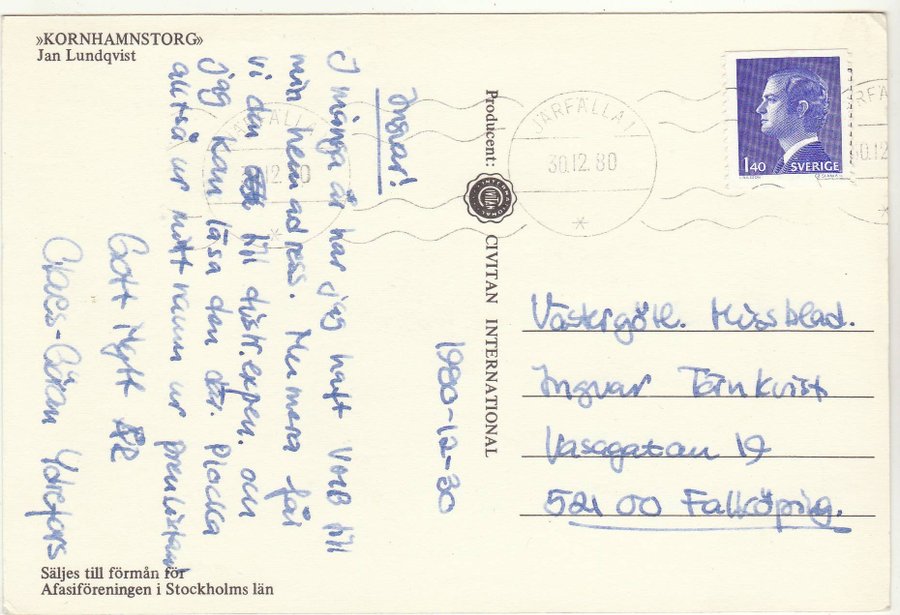 »KORNHAMNSTORG»
Jan Lundqvist
Ingvar!
I många år har jag haft VMB till
min hemadress. Numera får
vi den till distr.expen. och
jag kan läsa den där. Plocka
alltså ur mitt namn ur prenlistan
Gott Nytt ÅR
Claes-Göran Ydrefors
1980-12-30
Säljes till förmån för
Afasiföreningen i Stockholms län
Producent: CIVITAN INTERNATIONAL
JÄRFÄLLA 1
30.12.80
1.40 SVERIGE
Västergötl. Missblad.
Ingvar Törnkvist
Vasagatan 19
521 00 Falköping.